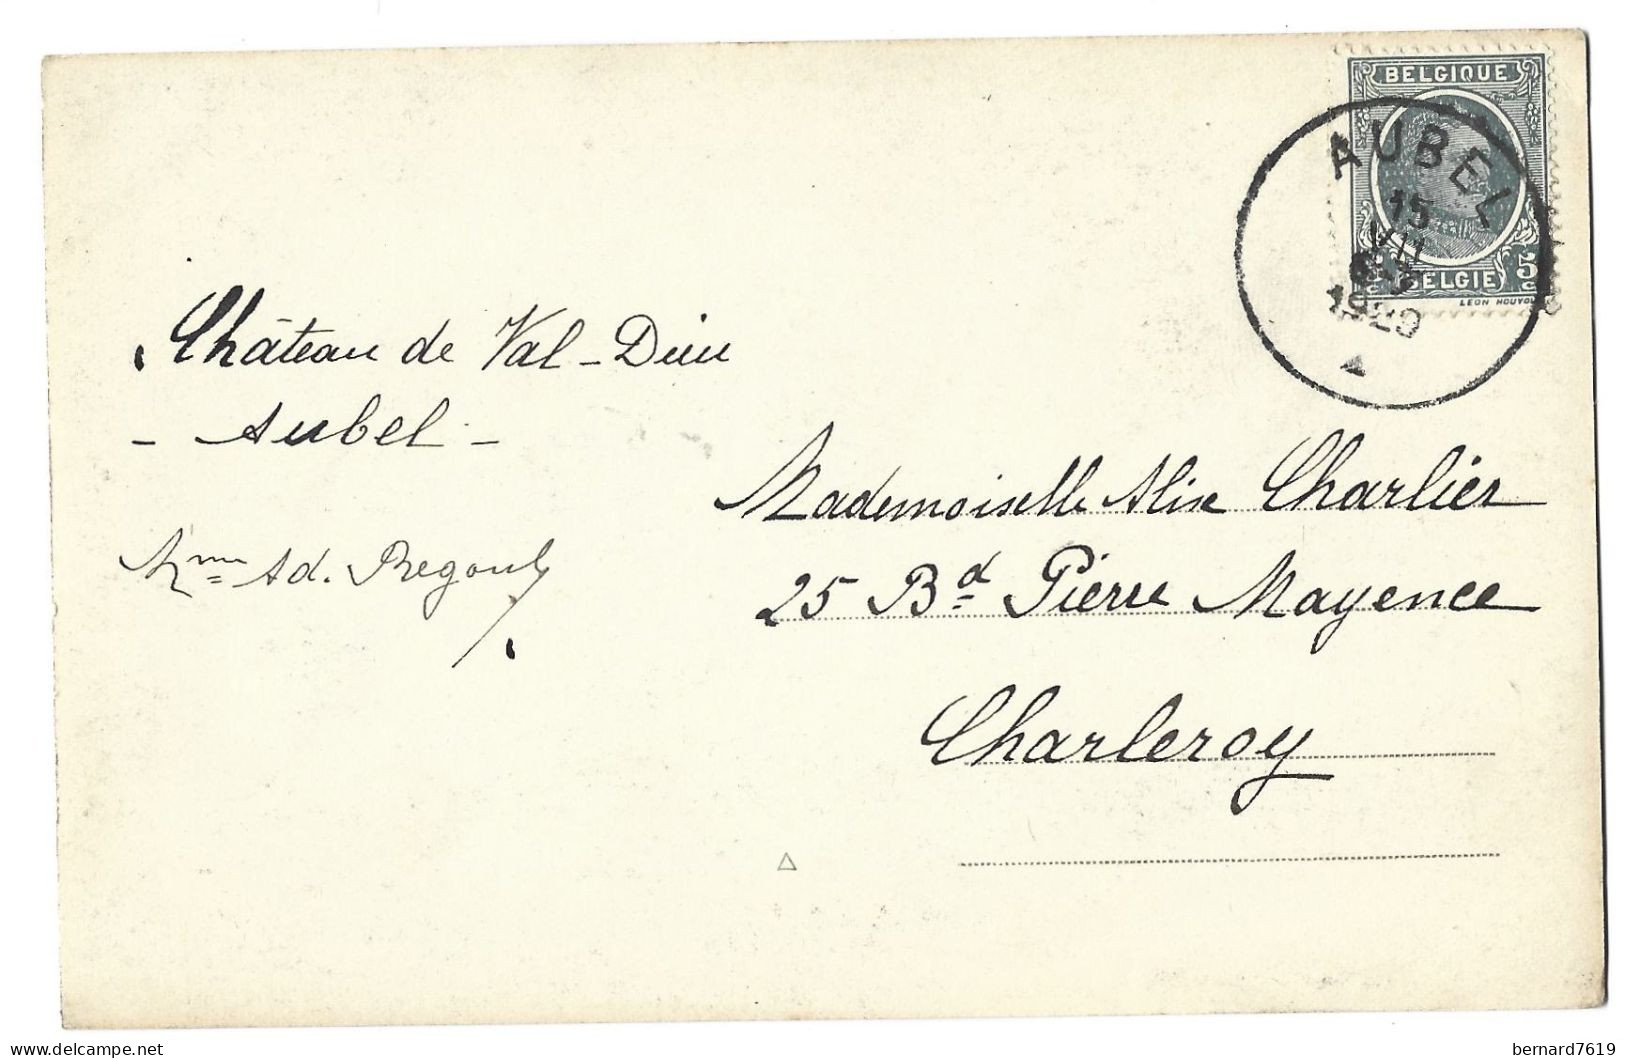 BELGIQUE
AUBEL
15
VII
1929
BELGIE 5c
LEON HOUYOU
Château de Val-Dieu
- Aubel -
Mme Ad. Regout
Mademoiselle Alix Charlier
25 Bd Pierre Mayence
Charleroy
delcampe.net
bernard7619